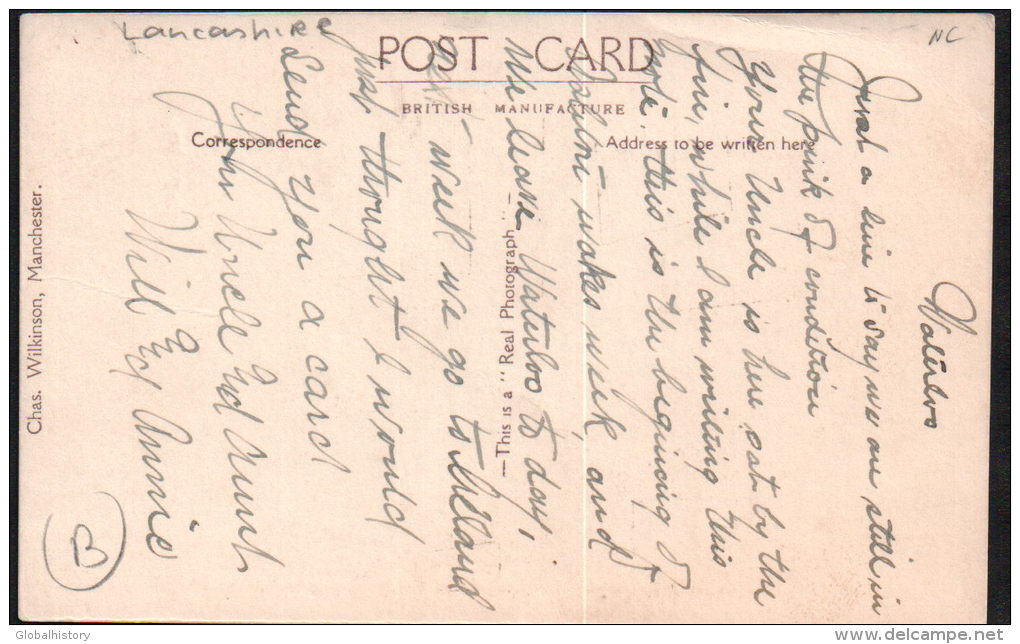 Lancashire
NC
POST CARD
BRITISH MANUFACTURE
Correspondence
Address to be written here
Chas. Wilkinson, Manchester.
—This is a "Real Photograph"—
Waterloo
Just a line to say we are still in
the pink of condition
Your Uncle is here sat by the
fire, while I am writing this
note this is the begining of
wakes week, and
we leave Waterloo to day,
next week we go to
just thought I would
Send you a card
Yr Uncle And Aunt
Will & Annie
B
Globalhistory
delcampe.net